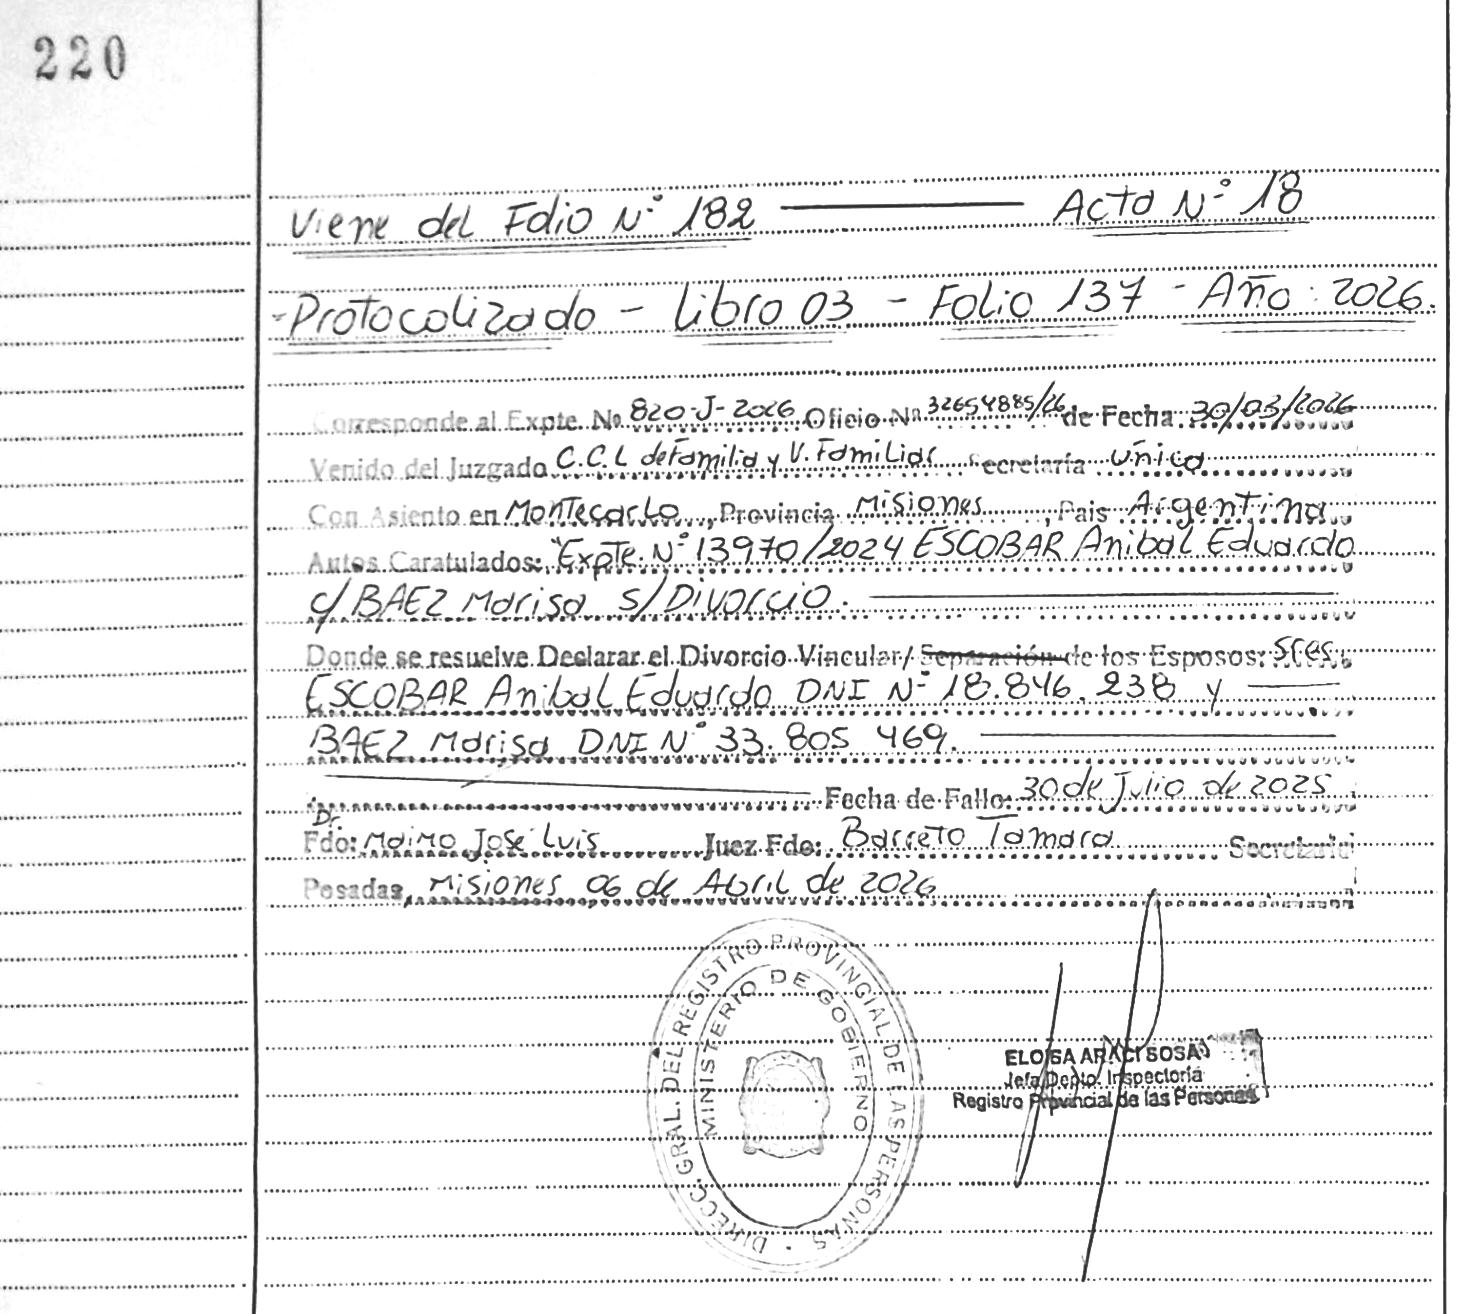 220
Viene del Folio N° 182 ——— Acta N° 18
- Protocolizado - Libro 03 - Folio 137 - Año: 2026.
Corresponde al Expte. Nº 820-J-2026 Oficio Nº 32654885/26 de Fecha 30/03/2026
Venido del Juzgado C.C.L de Familia y V. Familiar Secretaría Única
Con Asiento en Montecarlo, Provincia Misiones, Pais Argentina
Autos Caratulados: "Expte. N° 13970/2024 ESCOBAR Anibal Eduardo
c/ BAEZ Marisa s/ Divorcio. ———
Donde se resuelve Declarar el Divorcio Vincular/ Separación de los Esposos: Sres.
ESCOBAR Anibal Eduardo DNI N° 18.846.238 y ———
BAEZ Marisa DNI N° 33.805 469. ———
Fecha de Fallo: 30 de Julio de 2025
Fdo: Dr. Maimo José Luis Juez Fdo: Barreto Tamara Secretaria
Posadas, Misiones 06 de Abril de 2026
DIRECC. GRAL. DEL REGISTRO PROVINCIAL DE LAS PERSONAS
MINISTERIO DE GOBIERNO
ELOISA ARACI SOSA
Jefa Depto. Inspectoría
Registro Provincial de las Personas